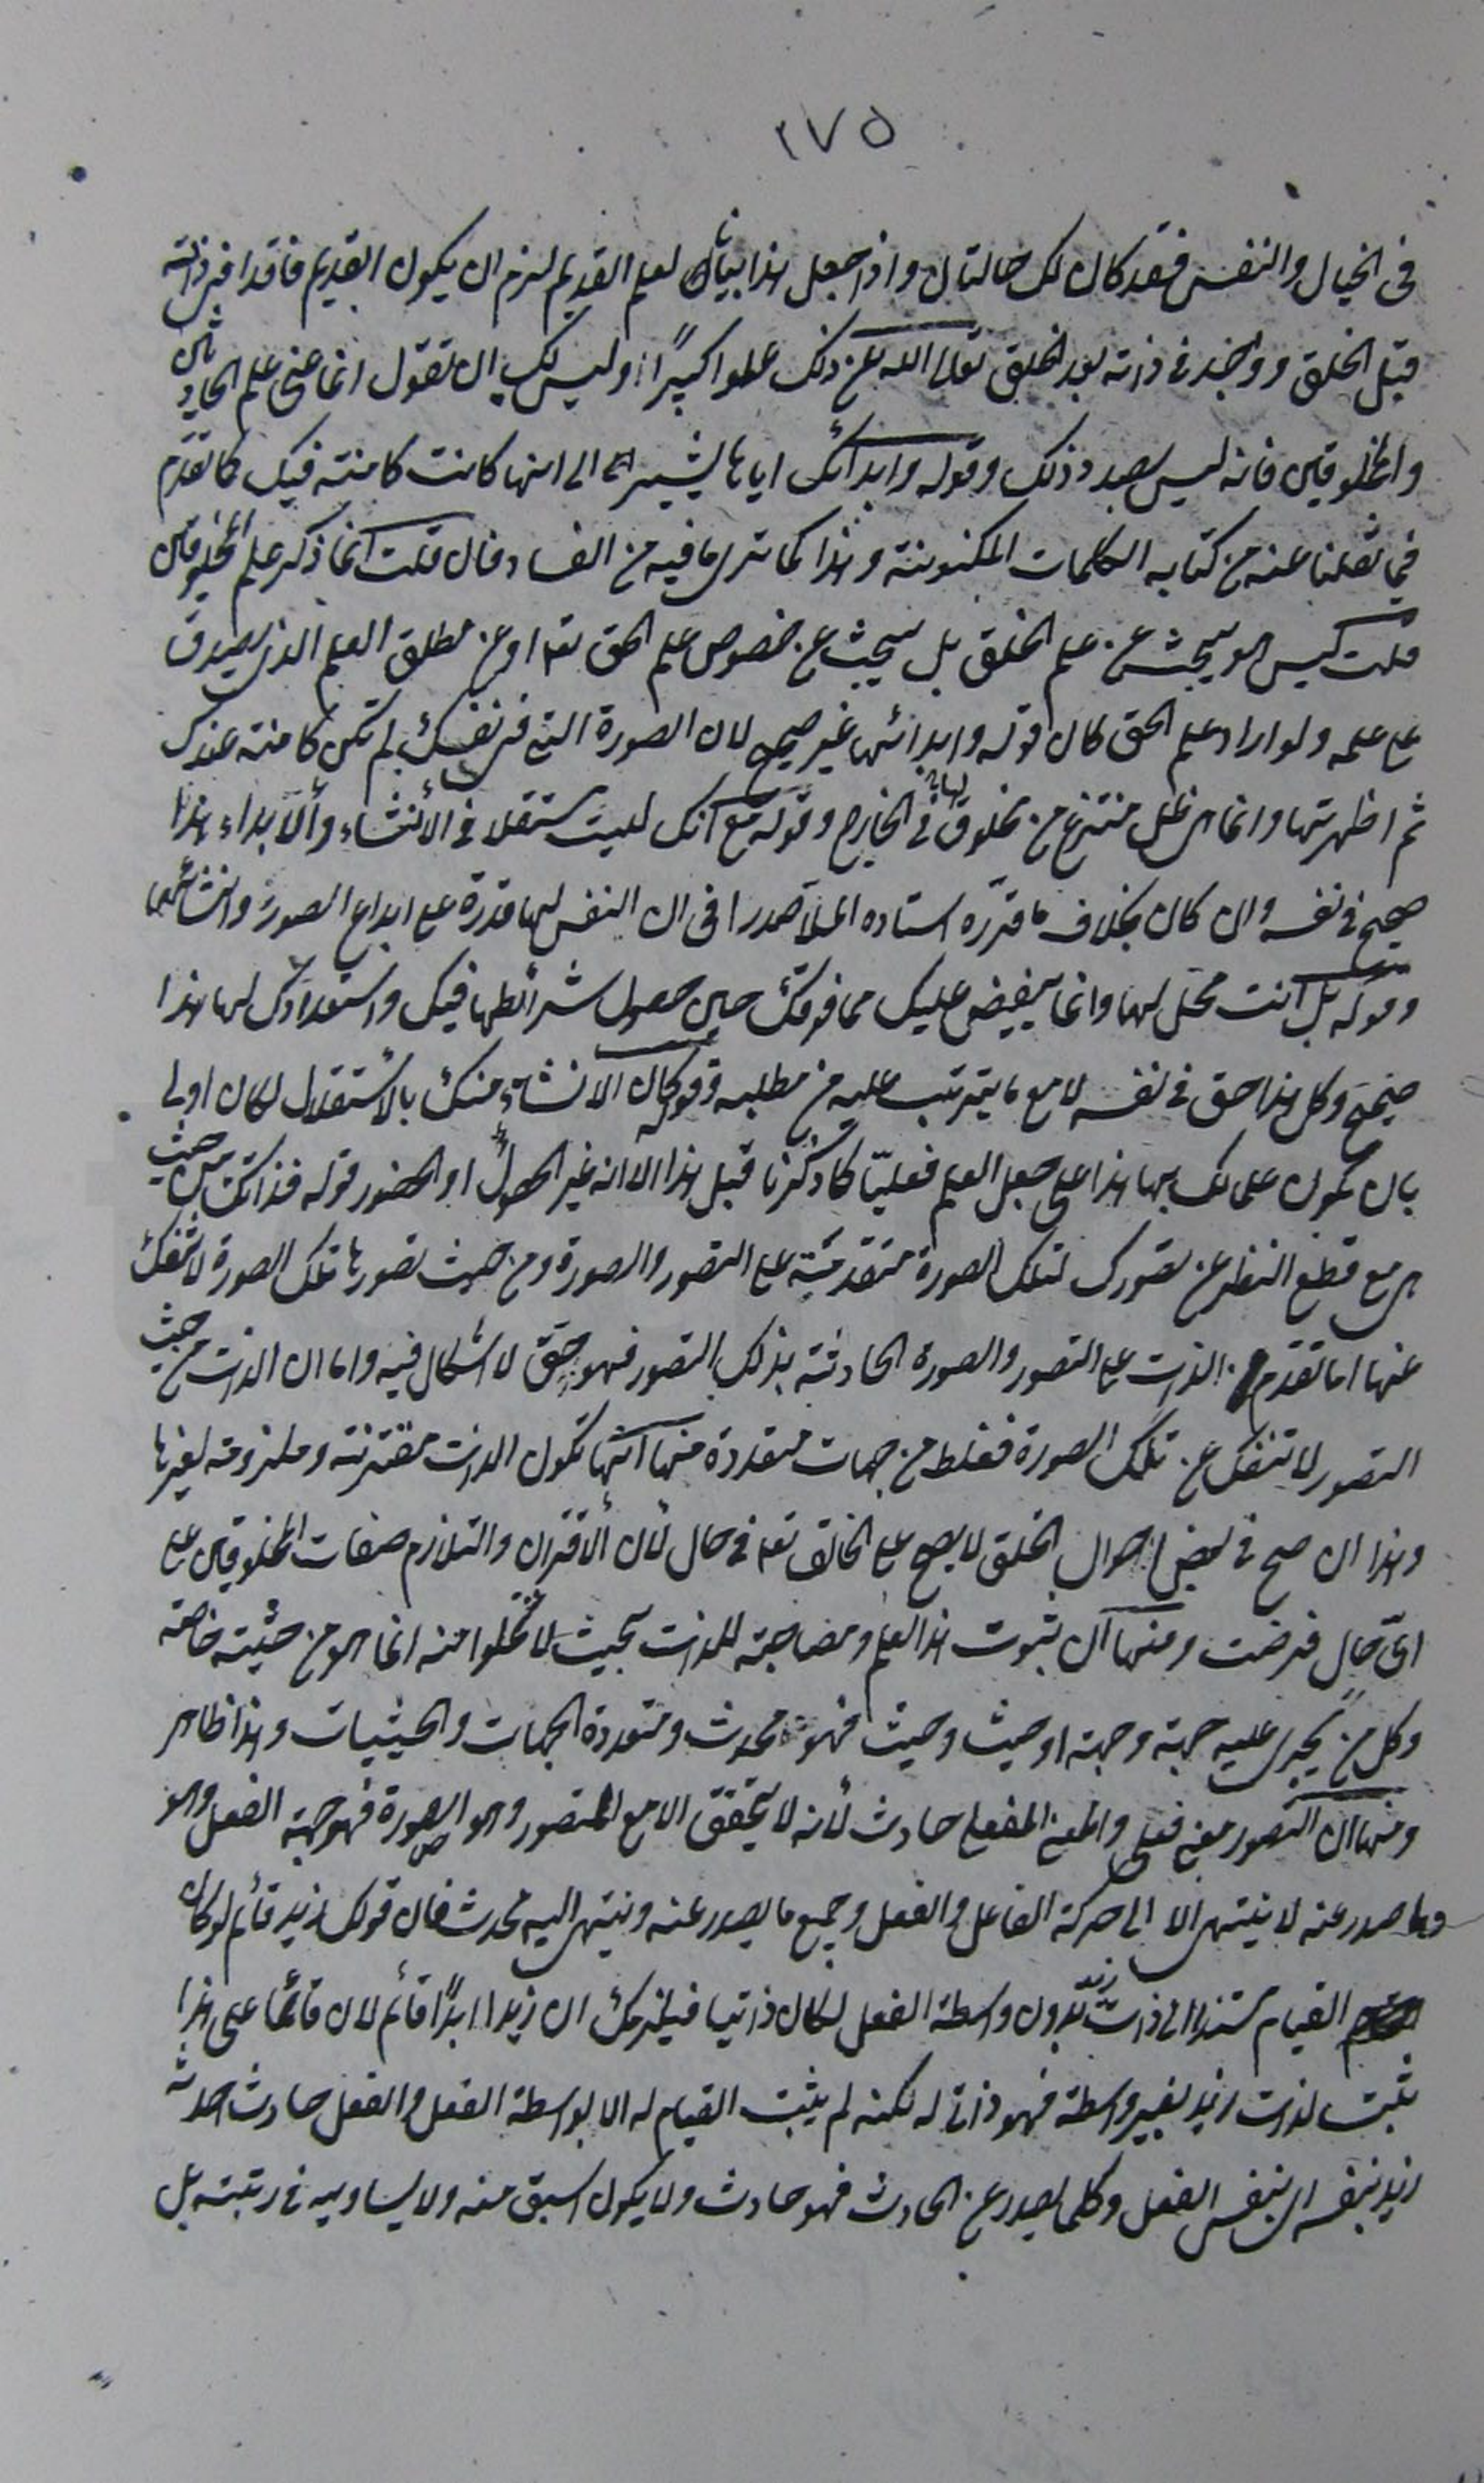 ٢٧٥
فى الخيال والنفس فقد كان لك حالتان واذا جعل هذا بيانا لعلم القديم لزم ان يكون القديم فاقدا فى ذاته
قبل الخلق وواجد فى ذاته بعد الخلق تعالى الله عن ذلك علوا كبيرًا وليس لك ان تقول انما عنى علم الحادثين
والمخلوقين فانه ليس بصدد ذلك وقوله وابدائك اياها يشير الى انها كانت كامنة فيك كما تقدم
فيما نقلنا عنه من كتابه الكلمات المكنونة وهذا كما ترى ما فيه من الفساد فان قلت انما ذكر علم المخلوقين
قلت ليس هو يبحث عن علم الخلق بل يبحث عن خصوص علم الحق تعا او عن مطلق العلم الذى يصدق
على علمه ولو اراد علم الحق كان قوله وابدائها غير صحيح لان الصورة التى فى نفسك لم تكن كامنة عندك
ثم اظهرتها وانما هى ظل منتزع من مخلوق فى الخارج وقوله مع انك لست مستقلا فى الأنشاء والابداء هذا
صحيح فى نفسه وان كان بخلاف ما قرّره استاده الملا صدرا فى ان النفس لها قدرة على ابداع الصور وانشائها
وقوله بل انت محل لها وانما يفيض عليك مما فوقك حين حصول شرائطها فيك واستعدادك لها هذا
صحيح وكل هذا حق فى نفسه لا مع ما يترتب عليه من مطلبه وقوله وكان الانشاء منك بالاستقلال لكان اولى
بان يكون علمك بها هذا على جعل العلم فعليّا كما ذكرنا قبل هذا الا انه غير الحصول او الحضور قوله فذاتك من حيث
هى مع قطع النظر عن تصورك لتلك الصورة متقدمة على التصور والصورة ومن حيث تصورها تلك الصورة لا تنفك
عنها اما تقدم الذات على التصور والصورة الحادثة بذلك التصور فهو حق لا اشكال فيه واما ان الذات من حيث
التصور لا تنفك عن تلك الصورة فغلط من جهات متعددة منها انها تكون الذات مقترنة وملزومة لغيرها
وهذا ان صح فى بعض احوال الخلق لا يصح على الخالق تعا فى حال لأن الأقتران والتلازم صفات المخلوقين على
اىّ حال فرضت ومنها ان ثبوت هذا العلم ومصاحبة للذات بحيث لا تخلوا منه انما هو من حيثية خاصة
وكل من يجرى عليه جهة وجهة او حيث وحيث فهو محدث ومتعددة الجهات والحيثيات وهذا ظاهر
ومنها ان التصور معنى فعلى والمعنى الفعلى حادث لأنه لا يتحقق الا مع المتصور وهو الصورة فهو جهة الفعل وهو
وما صدر عنه لا ينتهى الا الى حركة الفاعل والفعل وجميع ما يصدر عنه وينتهى اليه محدث فان قولك زيد قائم لو كان
القيام مستندا الى ذات زيد بدون واسطة الفعل لكان ذاتيا فيلزمك ان زيدا ابدًا قائم لان قائما على هذا
ثبت لذات زيد بغير واسطة فهو ذاتى له لكنه لم يثبت القيام له الا بواسطة الفعل والفعل حادث احدثه
زيد بنفسه اى بنفس الفعل وكلما يصدر عن الحادث فهو حادث ولا يكون اسبق منه ولا يساويه فى رتبته بل